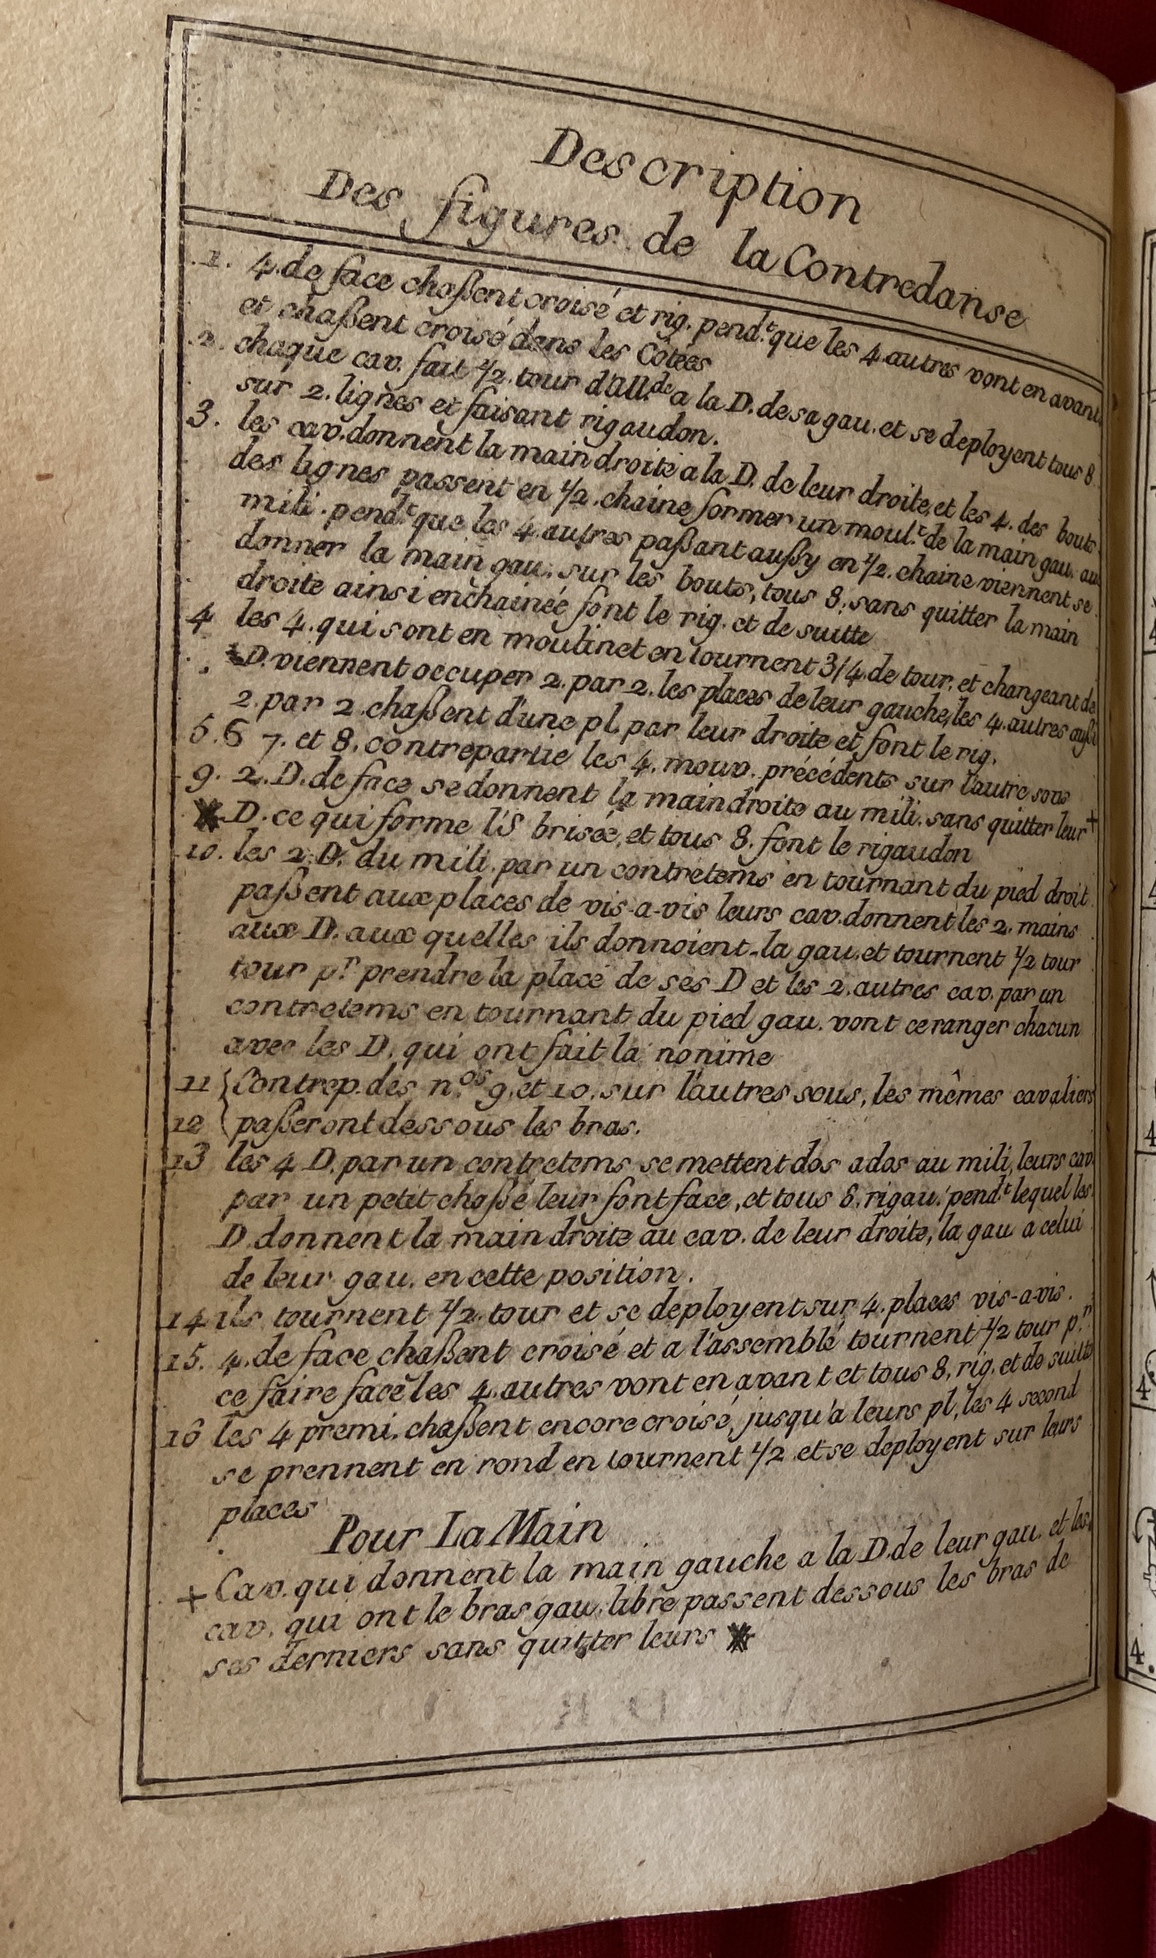 Description
Des figures de la Contredanse
.1. 4. de face chaßent croisé et rig. pend.t que les 4. autres vont en avant
et chaßent croisé dans les Côtées
.2. chaque cav. fait 1/2. tour d'all.de a la D. de sa gau. et se deployent tous 8.
sur 2. lignes et faisant rigaudon.
3. les cav. donnent la main droite a la D. de leur droite, et les 4. des bouts
des lignes passent en 1/2. chaine former un moul.t de la main gau. au
mili. pend.t que les 4. autres paßant außy en 1/2. chaine viennent se
donner la main gau. sur les bouts, tous 8. sans quitter la main
droite ainsi enchainée font le rig. et de suitte
4 les 4. qui sont en moulinet en tournent 3/4. de tour, et changeant de
D. viennent occuper 2. par 2. les places de leur gauche, les 4. autres außi
2. par 2. chaßent d'une pl. par leur droite et font le rig.
5. 6 7. et 8. contrepartie les 4. mouv. précédents sur l'autre sens
9. 2. D. de face se donnent la main droite au mili. sans quitter leur +
D. ce qui forme l'S brisée, et tous 8. font le rigaudon
10. les 2. D. du mili. par un contretems en tournant du pied droit
paßent aux places de vis-a-vis leurs cav. donnent les 2. mains
aux D. aux quelles ils donnoient la gau. et tournent 1/2 tour
tour p.r prendre la place de ses D et les 2. autres cav. par un
contretems en tournant du pied gau. vont ce ranger chacun
avec les D. qui ont fait la nonime
11 { Contrep. des n.os 9. et 10. sur l'autres sous, les mêmes cavaliers
12 { paßeront dessous les bras.
13 les 4 D. par un contretems se mettent dos a dos au mili, leurs cav.
par un petit chaßé leur font face, et tous 8. rigau. pend.t lequel les
D. donnent la main droite au cav. de leur droite, la gau a celui
de leur gau. en cette position.
14 ils tournent 1/2. tour et se deployent sur 4. places vis-a-vis.
15. 4. de face chaßent croisé et a l'assemblé tournent 1/2 tour p.r
ce faire face les 4. autres vont en avant et tous 8. rig. et de suitte
16 les 4 premi. chaßent encore croisé, jusqu'a leurs pl. les 4 second
se prennent en rond en tournent 1/2 et se deployent sur leurs
places
Pour La Main
+ Cav. qui donnent la main gauche a la D. de leur gau. et les
cav. qui ont le bras gau. libre passent dessous les bras de
ses derniers sans quitter leurs